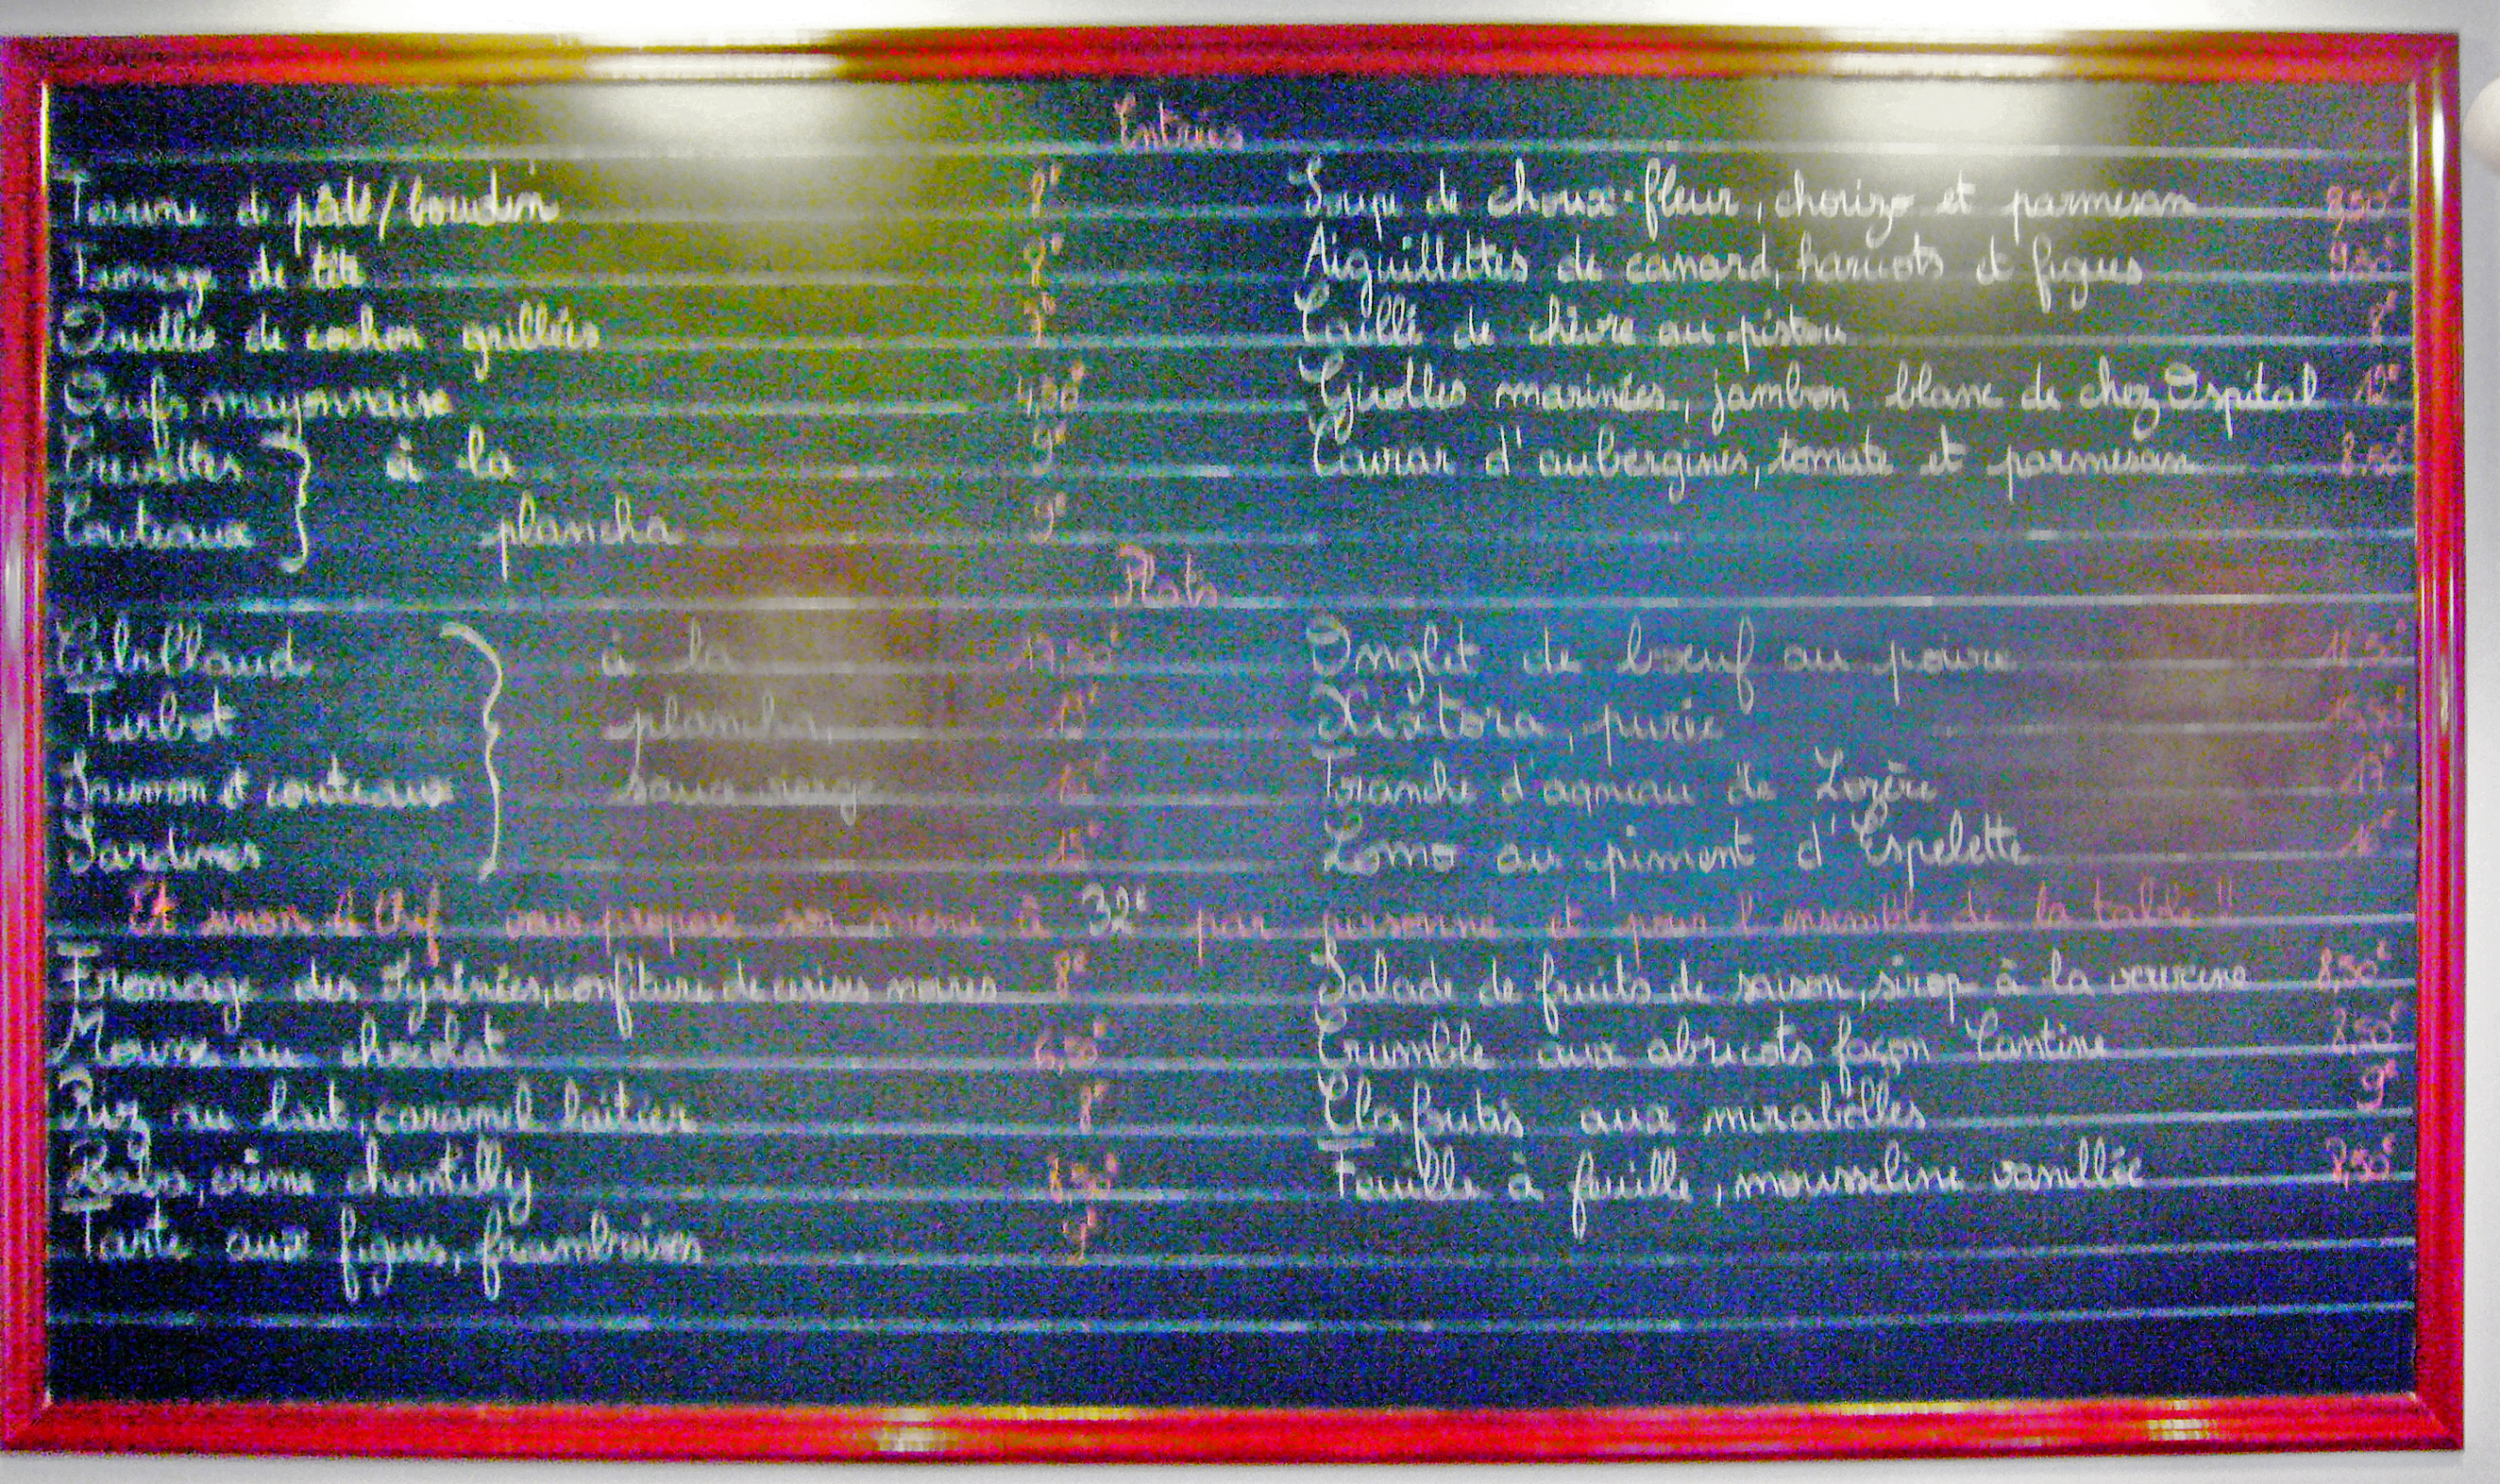 Entrées
Terrine de pâté/boudin 8€
Fromage de tête 8€
Oreilles de cochon grillées 7€
Oeufs mayonnaise 4,50€
Crevettes à la 9€
Couteaux plancha 9€
Soupe de choux-fleur, chorizo et parmesan 8,50€
Aiguillettes de canard, haricots et figues 9,50€
Caillé de chèvre au pistou 8€
Girolles marinées, jambon blanc de chez Ospital 12€
Caviar d'aubergines, tomate et parmesan 8,50€
Plats
Cabillaud à la
Turbot plancha,
Saumon et couteaux sauce vierge
Sardines 15€
Onglet de bœuf au poivre
Xixtora, purée
Tranche d'agneau de Lozère 17€
Lomo au piment d'Espelette 16€
Et sinon le Chef vous propose son menu à 32€ par personne et pour l'ensemble de la table !!
Fromage des Pyrénées, confiture de cerises noires 8€
Mousse au chocolat
Riz au lait, caramel laitier 8€
Baba, crème chantilly 8,50€
Tarte aux figues, framboises 9€
Salade de fruits de saison, sirop à la verveine 8,50€
Crumble aux abricots façon Cantine 8,50€
Clafoutis aux mirabelles 9€
Feuille à feuille, mousseline vanillée 8,50€